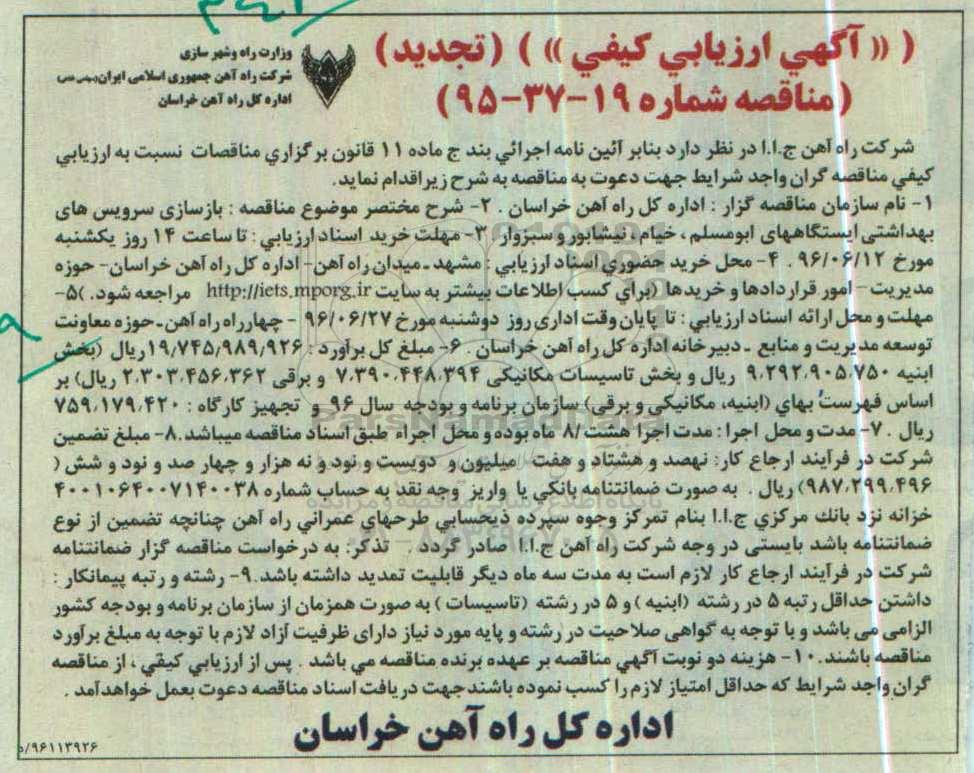 ( (( آگهي ارزيابي كيفي )) ) (تجديد)
(مناقصه شماره ۱۹-۳۷-۹۵)
وزارت راه وشهر سازی
شرکت راه آهن جمهوری اسلامی ایران(سهامی خاص)
اداره کل راه آهن خراسان
شركت راه آهن ج.ا.ا در نظر دارد بنابر آئين نامه اجرائي بند ج ماده ۱۱ قانون برگزاري مناقصات نسبت به ارزيابي
كيفي مناقصه گران واجد شرايط جهت دعوت به مناقصه به شرح زيراقدام نمايد.
۱- نام سازمان مناقصه گزار : اداره کل راه آهن خراسان . ۲- شرح مختصر موضوع مناقصه : بازسازی سرویس های
بهداشتی ایستگاههای ابومسلم ، خیام ، نیشابور و سبزوار . ۳- مهلت خريد اسناد ارزيابي : تا ساعت ۱۴ روز یکشنبه
مورخ ۹۶/۰۶/۱۲ . ۴- محل خريد حضوري اسناد ارزيابي : مشهد ـ ميدان راه آهن- اداره كل راه آهن خراسان- حوزه
مديريت- امور قراردادها و خريدها (براي كسب اطلاعات بيشتر به سايت http://iets.mporg.ir مراجعه شود. )۵-
مهلت و محل ارائه اسناد ارزيابي : تا پایان وقت اداری روز دوشنبه مورخ ۹۶/۰۶/۲۷ - چهارراه راه آهن ـ حوزه معاونت
توسعه مدیریت و منابع ـ دبیرخانه اداره کل راه آهن خراسان . ۶- مبلغ كل برآورد : ۱۹/۷۴۵/۹۸۹/۹۲۶ريال (بخش
ابنیه ۹،۲۹۲،۹۰۵،۷۵۰ ریال و بخش تاسیسات مکانیکی ۷،۳۹۰،۴۴۸،۳۹۴ و برقی ۲،۳۰۳،۴۵۶،۳۶۲ ریال) بر
اساس فهرست بهاي (ابنیه، مکانیکی و برقی) سازمان برنامه و بودجه سال ۹۶ و تجهیز کارگاه : ۷۵۹،۱۷۹،۴۲۰
ریال . ۷- مدت و محل اجرا : مدت اجرا هشت /۸ ماه بوده و محل اجراء طبق اسناد مناقصه میباشد.۸- مبلغ تضمين
شركت در فرآيند ارجاع كار: نهصد و هشتاد و هفت ميليون و دویست و نود و نه هزار و چهار صد و نود و شش (
۹۸۷،۲۹۹،۴۹۶) ريال . به صورت ضمانتنامه بانكي يا واريز وجه نقد به حساب شماره ۴۰۰۱۰۶۴۰۰۷۱۴۰۰۳۸
خزانه نزد بانك مركزي ج.ا.ا بنام تمركز وجوه سپرده ذيحسابي طرحهاي عمراني راه آهن چنانچه تضمين از نوع
ضمانتنامه باشد بايستی در وجه شركت راه آهن ج.ا.ا صادر گردد . تذكر: به درخواست مناقصه گزار ضمانتنامه
شركت در فرآيند ارجاع كار لازم است به مدت سه ماه ديگر قابليت تمديد داشته باشد.۹- رشته و رتبه پيمانكار :
داشتن حداقل رتبه ۵ در رشته (ابنیه ) و ۵ در رشته (تاسیسات ) به صورت همزمان از سازمان برنامه و بودجه کشور
الزامی می باشد و با توجه به گواهی صلاحیت در رشته و پایه مورد نیاز دارای ظرفیت آزاد لازم با توجه به مبلغ برآورد
مناقصه باشند.۱۰- هزينه دو نوبت آگهي مناقصه بر عهده برنده مناقصه مي باشد . پس از ارزيابي كيفي ، از مناقصه
گران واجد شرايط كه حداقل امتياز لازم را كسب نموده باشند جهت دريافت اسناد مناقصه دعوت بعمل خواهدآمد .
اداره کل راه آهن خراسان
۹۶۱۱۳۹۲۶/د
ParsNamadData